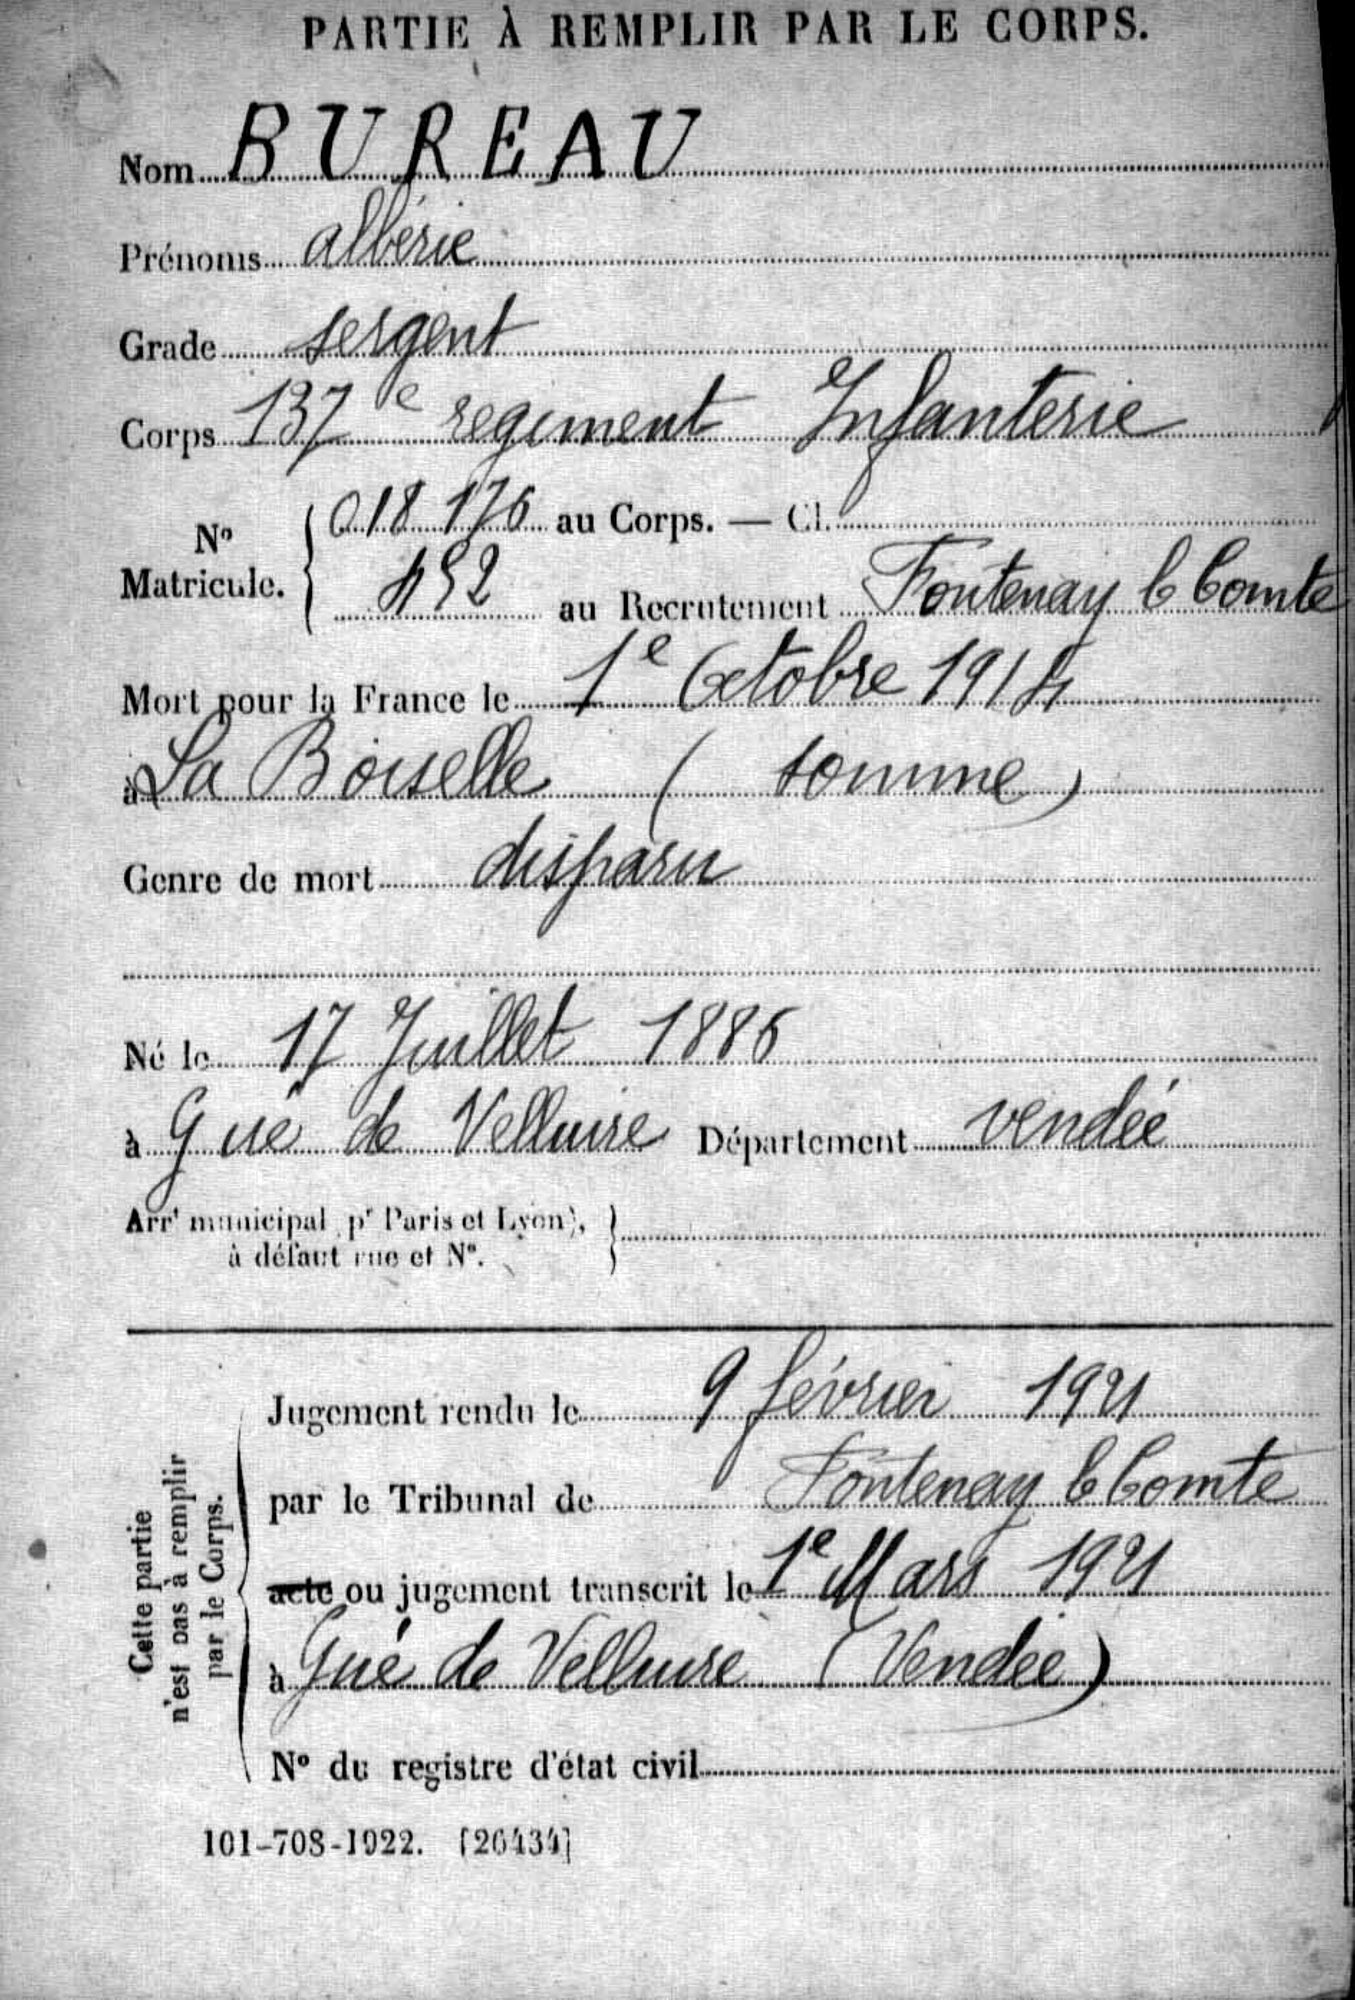 PARTIE À REMPLIR PAR LE CORPS.
Nom BUREAU
Prénoms albéric
Grade sergent
Corps 137e regiment Infanterie
No Matricule. 018 176 au Corps. — Cl.
492 au Recrutement Fontenay le Comte
Mort pour la France le 1e Octobre 1914
à La Boiselle ( somme )
Genre de mort disparu
Né le 17 Juillet 1886
à Gué de Velluire Département vendée
Arrt municipal pr Paris et Lyon),
à défaut rue et No.
Cette partie
n'est pas à remplir
par le Corps.
Jugement rendu le 9 février 1921
par le Tribunal de Fontenay le Comte
acte ou jugement transcrit le 1e Mars 1921
à Gué de Velluire (Vendée)
No du registre d'état civil
101-708-1922. [26434]